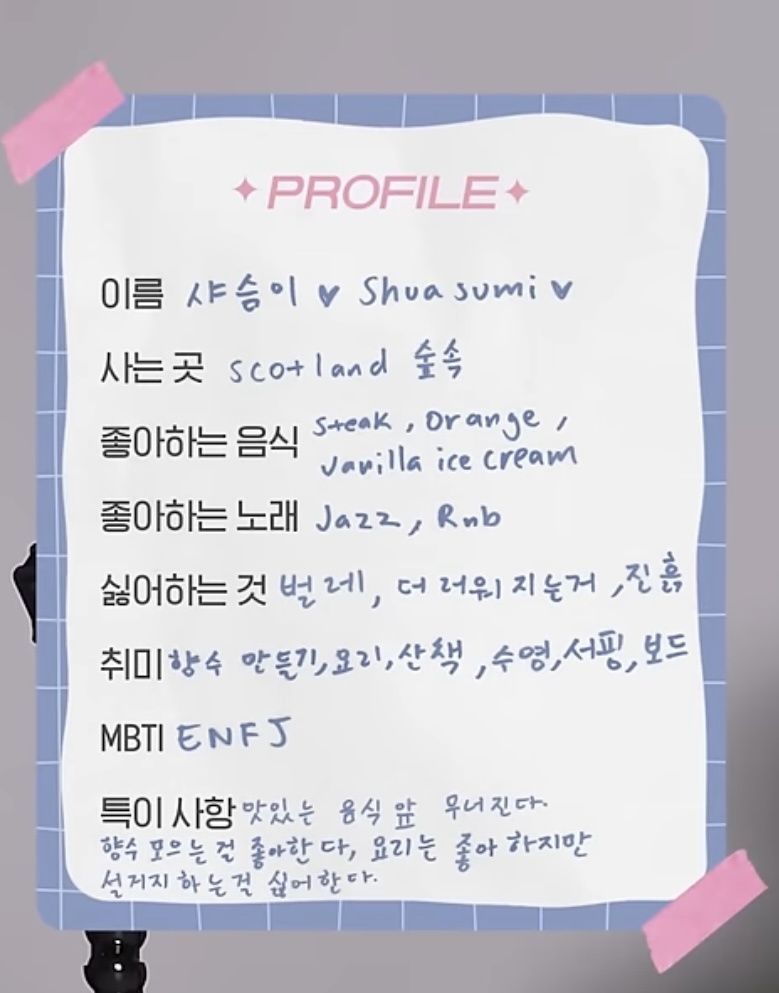 PROFILE
이름 샤슴이 ♥ Shua sumi ♥
사는 곳 scotland 숲속
좋아하는 음식 steak, orange,
vanilla ice cream
좋아하는 노래 Jazz, Rnb
싫어하는 것 벌레, 더러워지는거, 진흙
취미 향수 만들기, 요리, 산책, 수영, 서핑, 보드
MBTI ENFJ
특이 사항 맛있는 음식 앞 무너진다.
향수 모으는걸 좋아한다, 요리는 좋아하지만
설거지 하는걸 싫어한다.